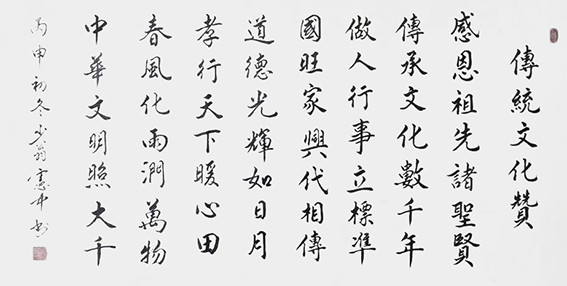 傳統文化贊
感恩祖先諸聖賢
傳承文化數千年
做人行事立標準
國旺家興代相傳
道德光輝如日月
孝行天下暖心田
春風化雨潤萬物
中華文明照大千
丙申初冬少翁憲中書